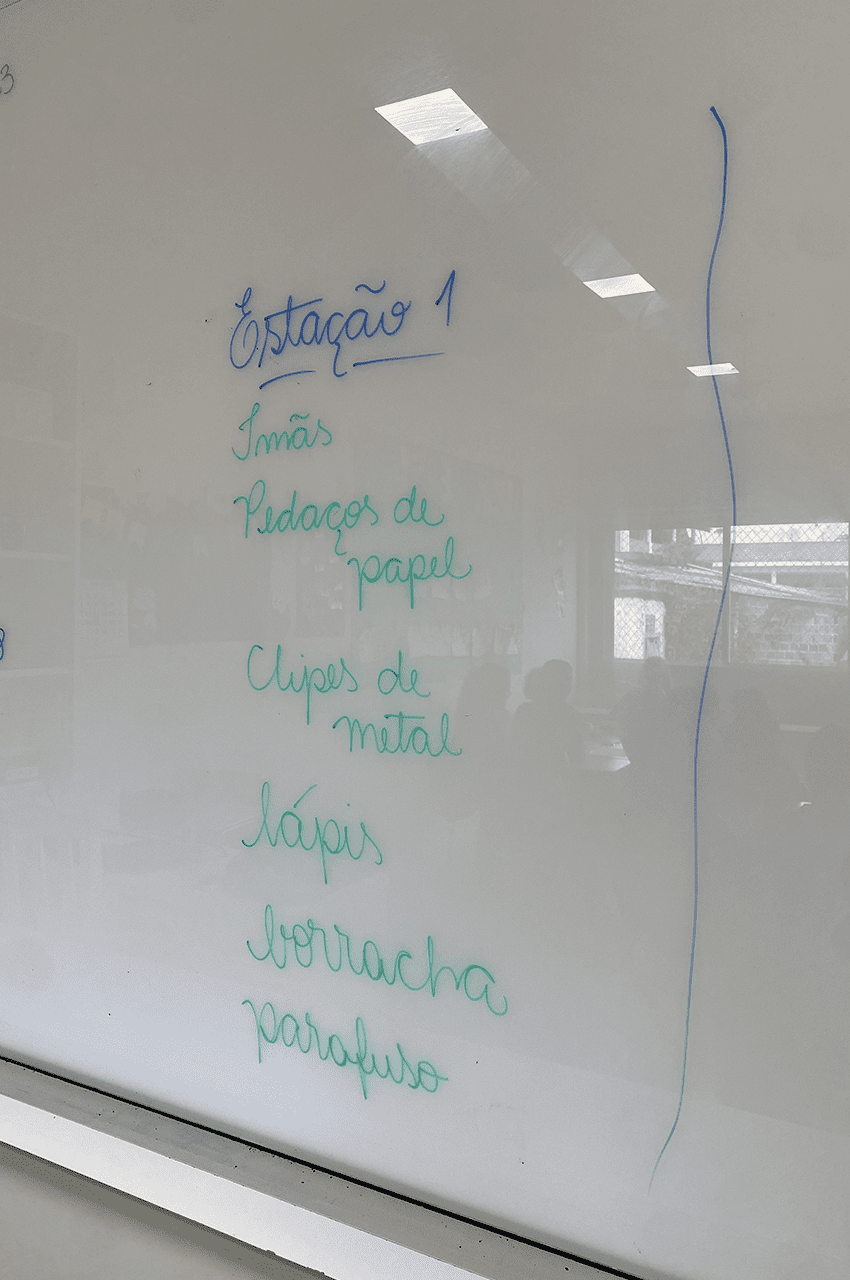 3
Estação 1
Imãs
Pedaços de
papel
Clipes de
metal
lápis
borracha
parafuso